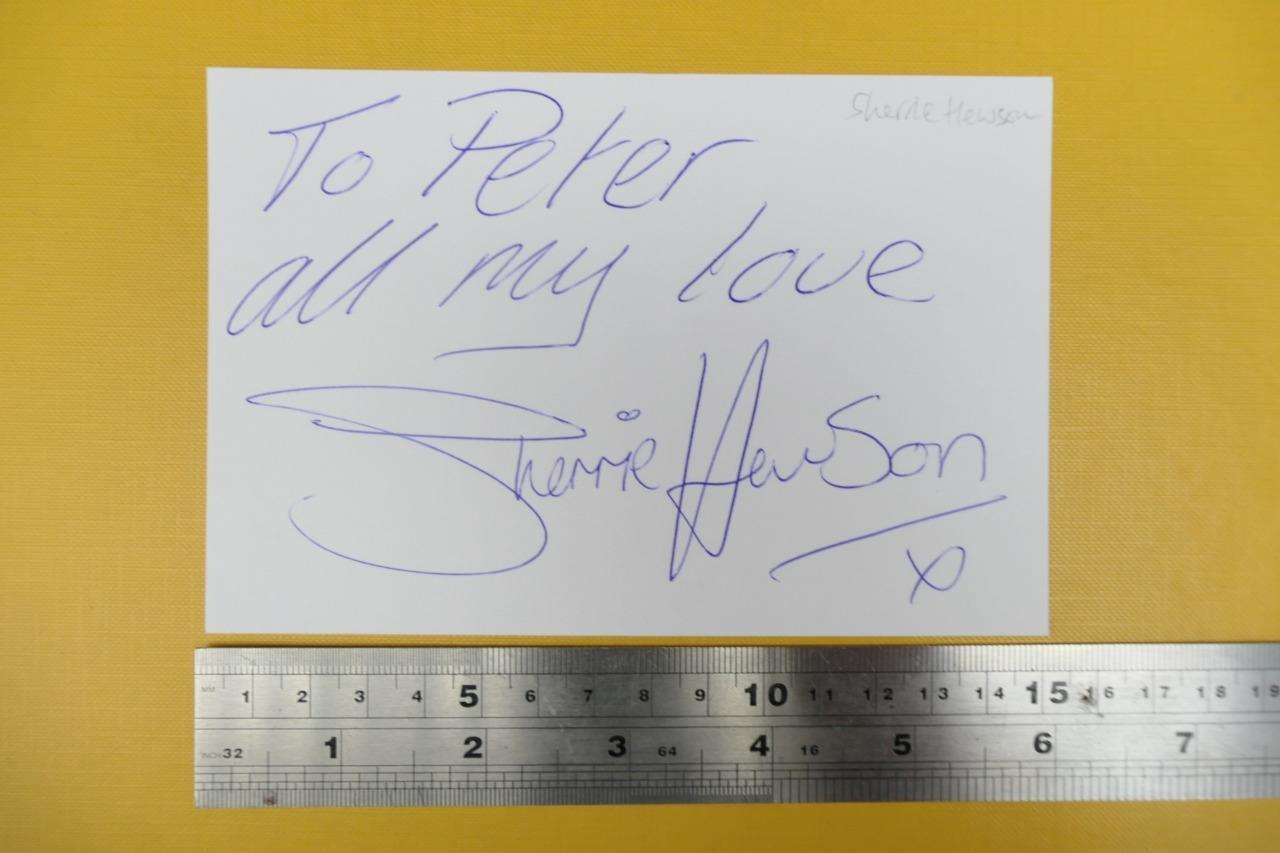 Sherrie Hewson
To Peter
all my love
Sherrie Hewson
x
MM 1 2 3 4 5 6 7 8 9 10 11 12 13 14 15 16 17 18 19
INCH 32 1 2 3 64 4 16 5 6 7